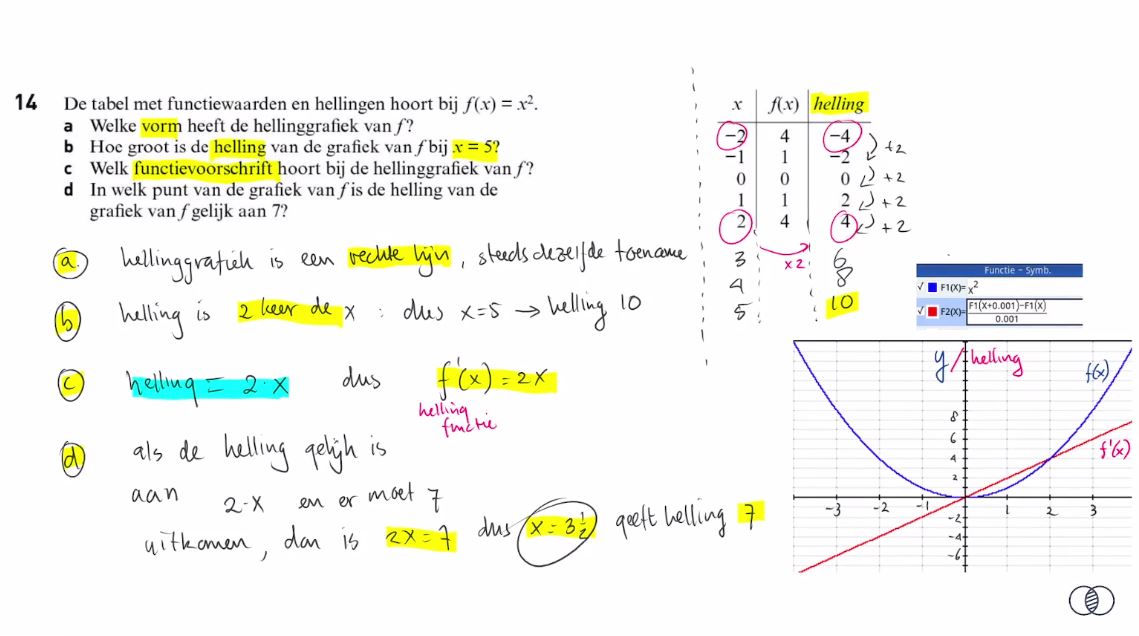 14 De tabel met functiewaarden en hellingen hoort bij f(x) = x².
a Welke vorm heeft de hellinggrafiek van f?
b Hoe groot is de helling van de grafiek van f bij x = 5?
c Welk functievoorschrift hoort bij de hellinggrafiek van f?
d In welk punt van de grafiek van f is de helling van de
grafiek van f gelijk aan 7?
x f(x) helling
−2 4 −4
+2
−1 1 −2
+2
0 0 0
+2
1 1 2
+2
2 4 4
x2
3 6
4 8
5 10
a. hellinggrafiek is een rechte lijn, steeds dezelfde toename
b helling is 2 keer de x : dus x=5 → helling 10
c helling = 2·x dus f'(x) = 2x
helling
functie
d als de helling gelijk is
aan 2·x en er moet 7
uitkomen, dan is 2x=7 dus x=3½ geeft helling 7
Functie - Symb.
✓ F1(X)= x²
✓ F2(X)= F1(X+0.001)−F1(X)
0.001
y/helling
f(x)
f'(x)
8
6
4
2
-3 -2 -1 1 2 3
-2
-4
-6